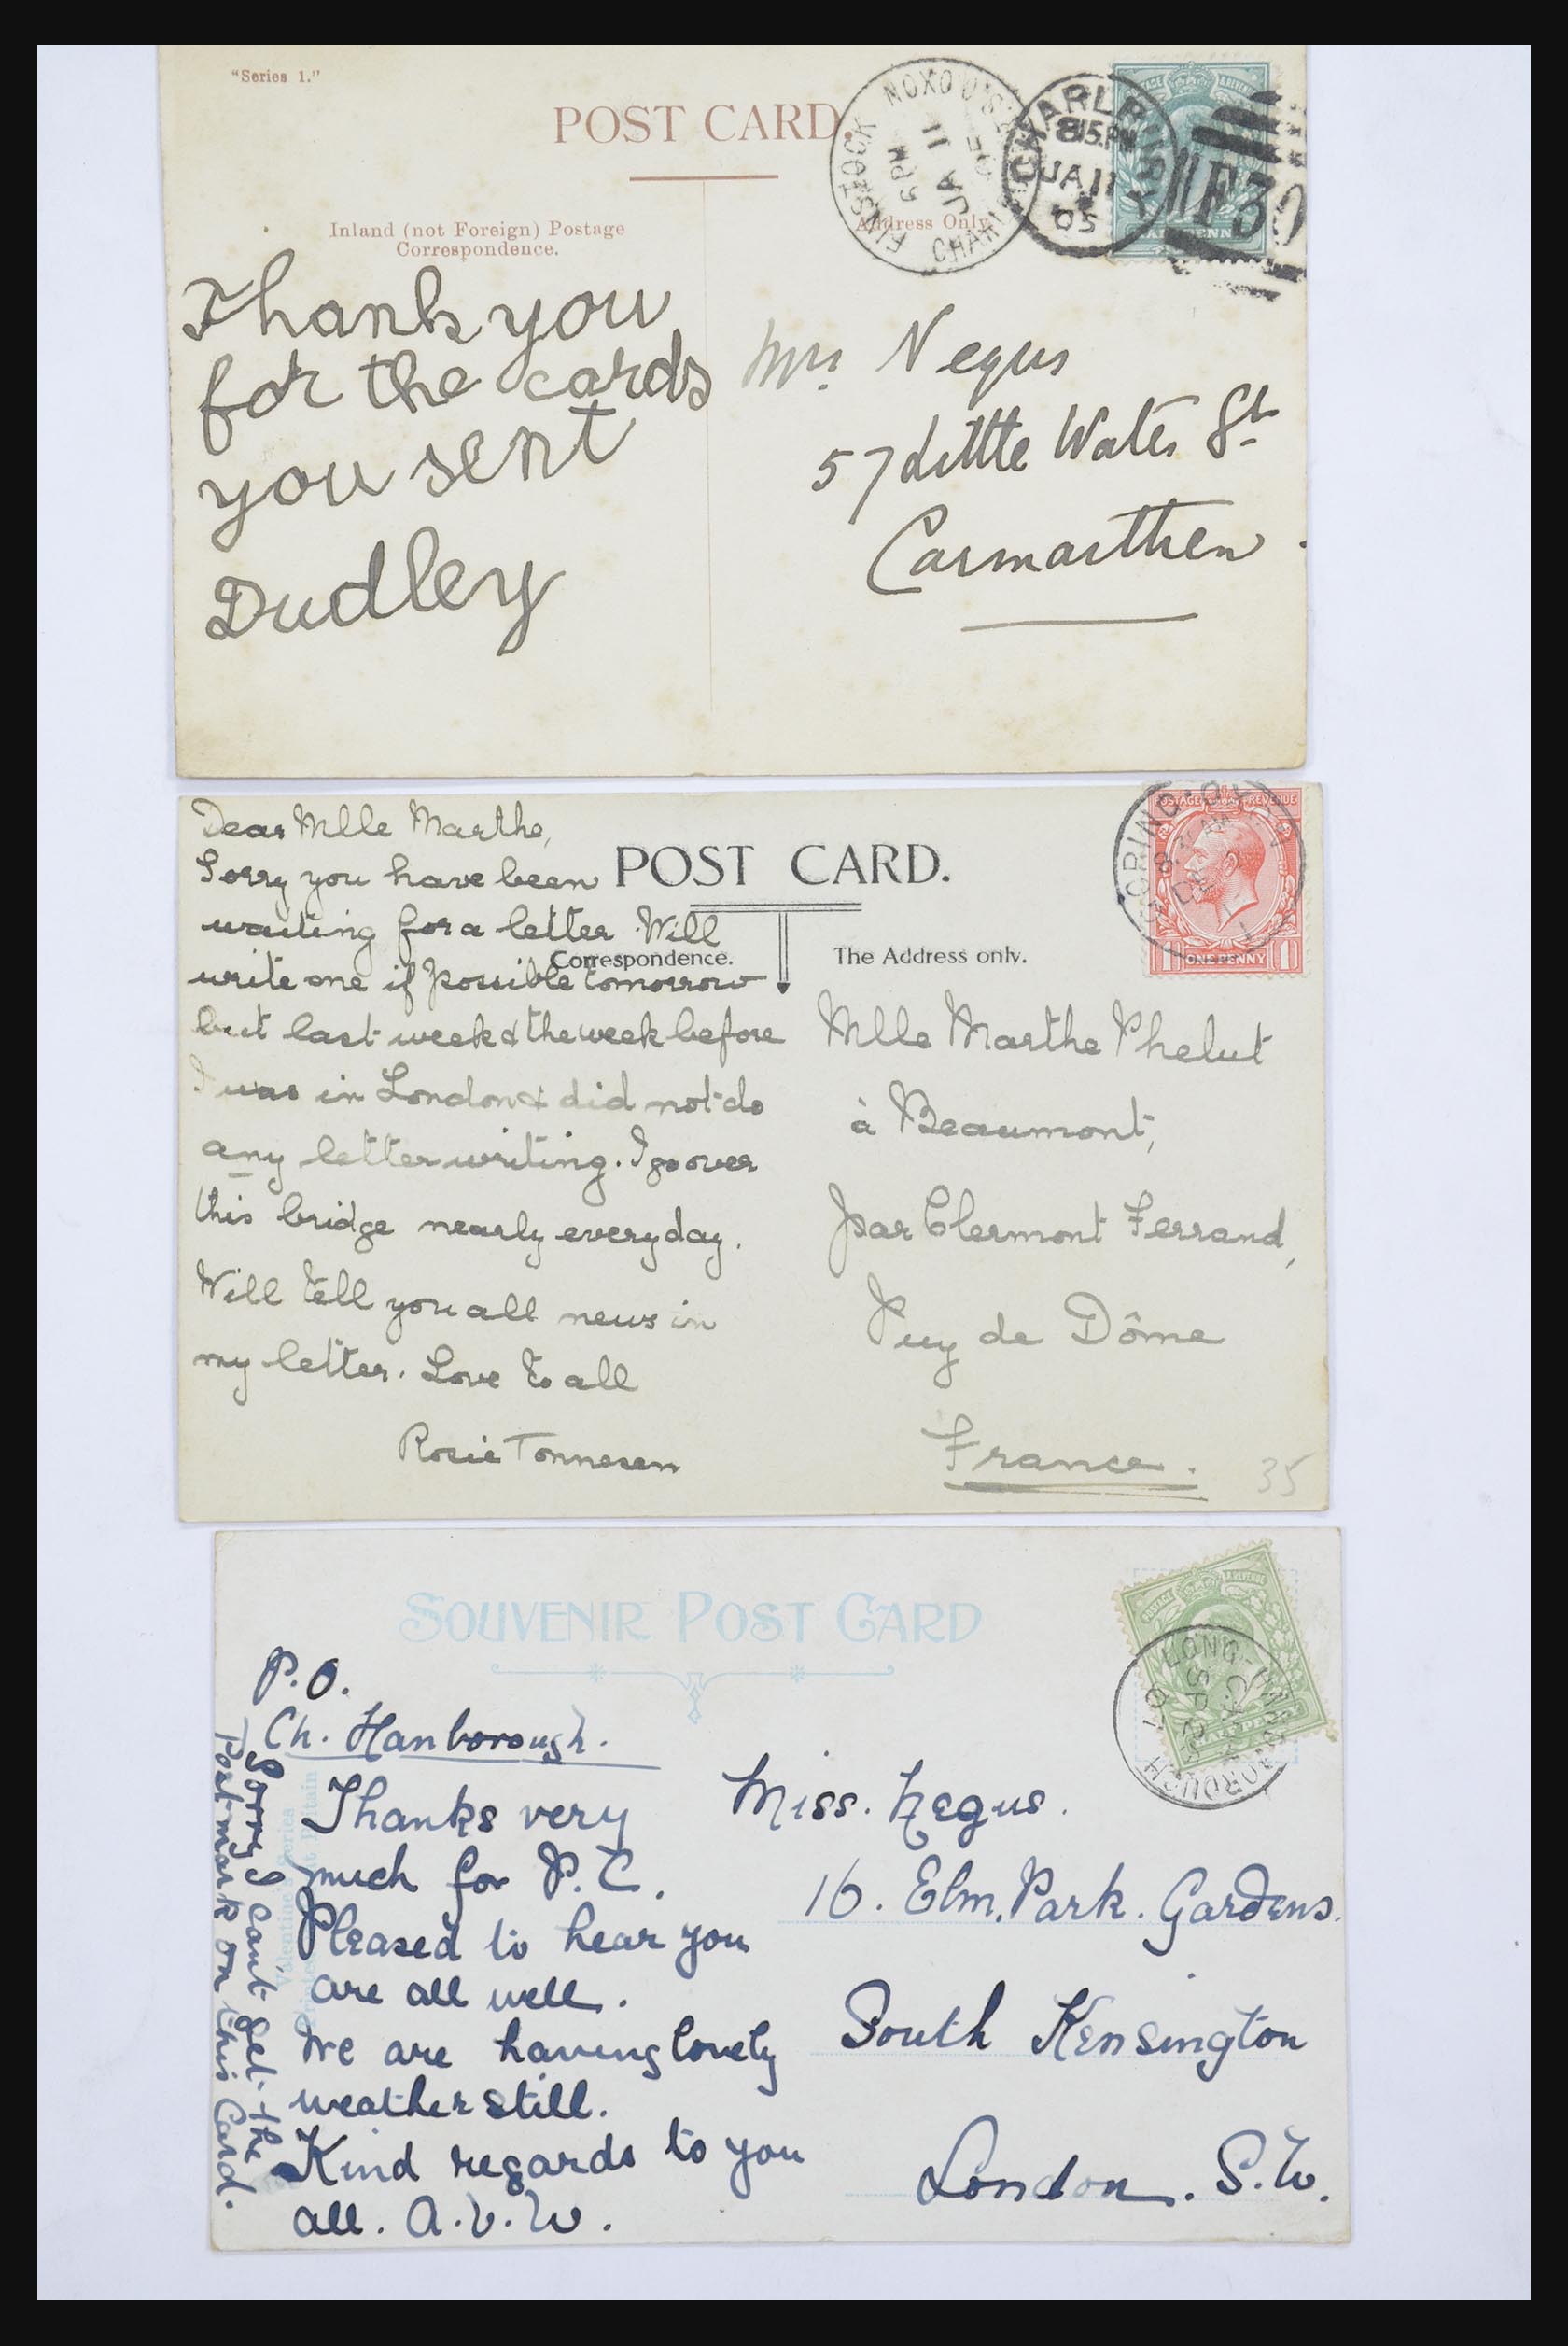 "Series 1."
POST CARD.
Inland (not Foreign) Postage
Correspondence.
Address Only
FINSTOCK
6PM
JA 11
05
CHARLBURY
8 15.PM
JA 11
05
F30
Thank you
for the cards
you sent
Dudley
Mrs. Negus
57 Little Water St
Carmarthen.
POST CARD.
Correspondence.
The Address only.
POSTAGE REVENUE
1 ONE PENNY 1
Dear Mlle Marthe,
Sorry you have been
waiting for a letter. Will
write one if possible tomorrow
but last week & the week before
I was in London & did not do
any letter writing. I go over
this bridge nearly every day.
Will tell you all news in
my letter. Love to all
Rosie Tonnesen
Mlle Marthe Phelut
à Beaumont,
par Clermont Ferrand,
Puy de Dôme
France.
35
SOUVENIR POST CARD
POSTAGE & REVENUE
LONG-HANDBOROUGH
SP
07
P.O.
Ch. Hanborough.
Thanks very
much for P.C.
Pleased to hear you
are all well.
We are having lovely
weather still.
Kind regards to you
all. A.V.W.
Sorry I can't get the
Postmark on this Card.
Valentine Series
Miss. Negus.
16. Elm. Park. Gardens.
South Kensington
London. S.W.